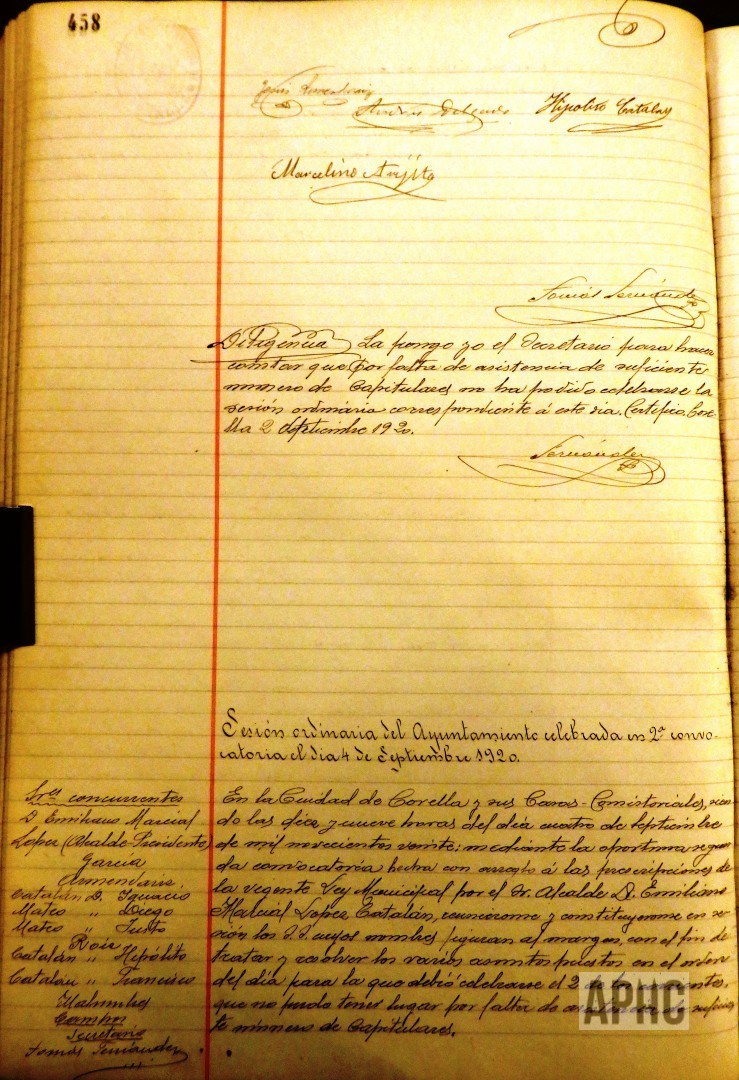 458
Hipólito Catalán
Marcelino
Tomás Fernández
Diligencia La pongo yo el Secretario para hacer
constar que por falta de asistencia de suficiente
número de Capitulares no ha podido celebrarse la
sesión ordinaria correspondiente á este dia. Certifico. Core-
lla 2 Septiembre 1920.
Fernández
Sesión ordinaria del Ayuntamiento celebrada en 2ª convo-
catoria el dia 4 de Septiembre 1920.
Sres concurrentes
D Emiliano Marcial
Lopez (Alcalde-Presidente)
Garcia
Armendariz
Catalán D. Ignacio
Mateo " Diego
Mateo " Justo
Catalán " Hipólito
Catalán " Francisco
Campos
Secretario
Tomás Fernández
En la Ciudad de Corella y sus Casas-Consistoriales, sien-
do las diez y nueve horas del dia cuatro de Septiembre
de mil novecientos veinte; mediante la oportuna segun-
da convocatoria hecha con arreglo á las prescripciones de
la vigente Ley Municipal por el Sr. Alcalde D. Emiliano
Marcial Lopez Catalán, reunieronse y constituyeronse en se-
sión los S.S. cuyos nombres figuran al margen, con el fin de
tratar y resolver los varios asuntos puestos en el orden
del dia para la que debió celebrarse el 2
que no pudo tener lugar por falta de suficien-
te número de Capitulares.
APHC